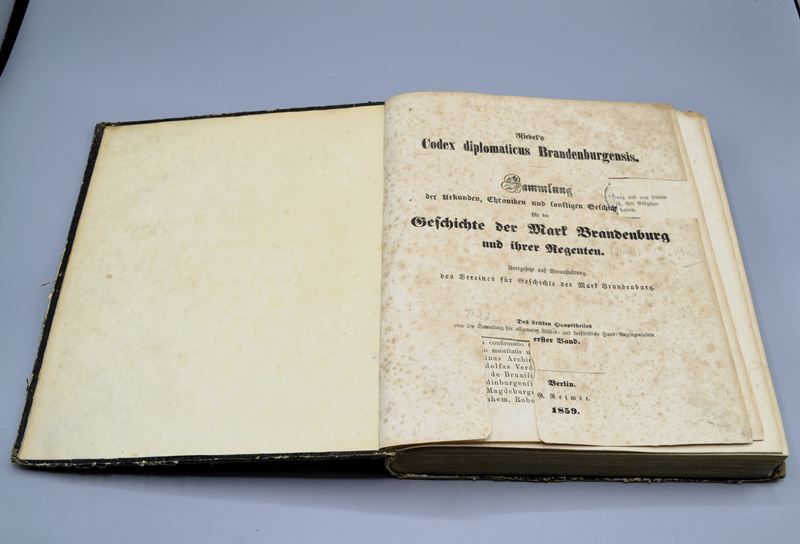 Riedel's
Codex diplomaticus Brandenburgensis.
Sammlung
der Urkunden, Chroniken und sonstigen
für die
Geschichte der Mark Brandenburg
und ihrer Regenten.
Fortgesetzt auf Veranstaltung
des Vereines für Geschichte der Mark Brandenburg.
Des dritten Haupttheiles
oder der Sammlung für allgemeine Landes- und kurfürstliche Haus-Angelegenheiten
erster Band.
Berlin.
G. Reimer.
1859.
und von seinem
ihre
haben,
confirmatio
o maiestatis n
inus Archie
dolfus Verd
de Brunis
dinburgensi
Magdeburge
nhem, Robe